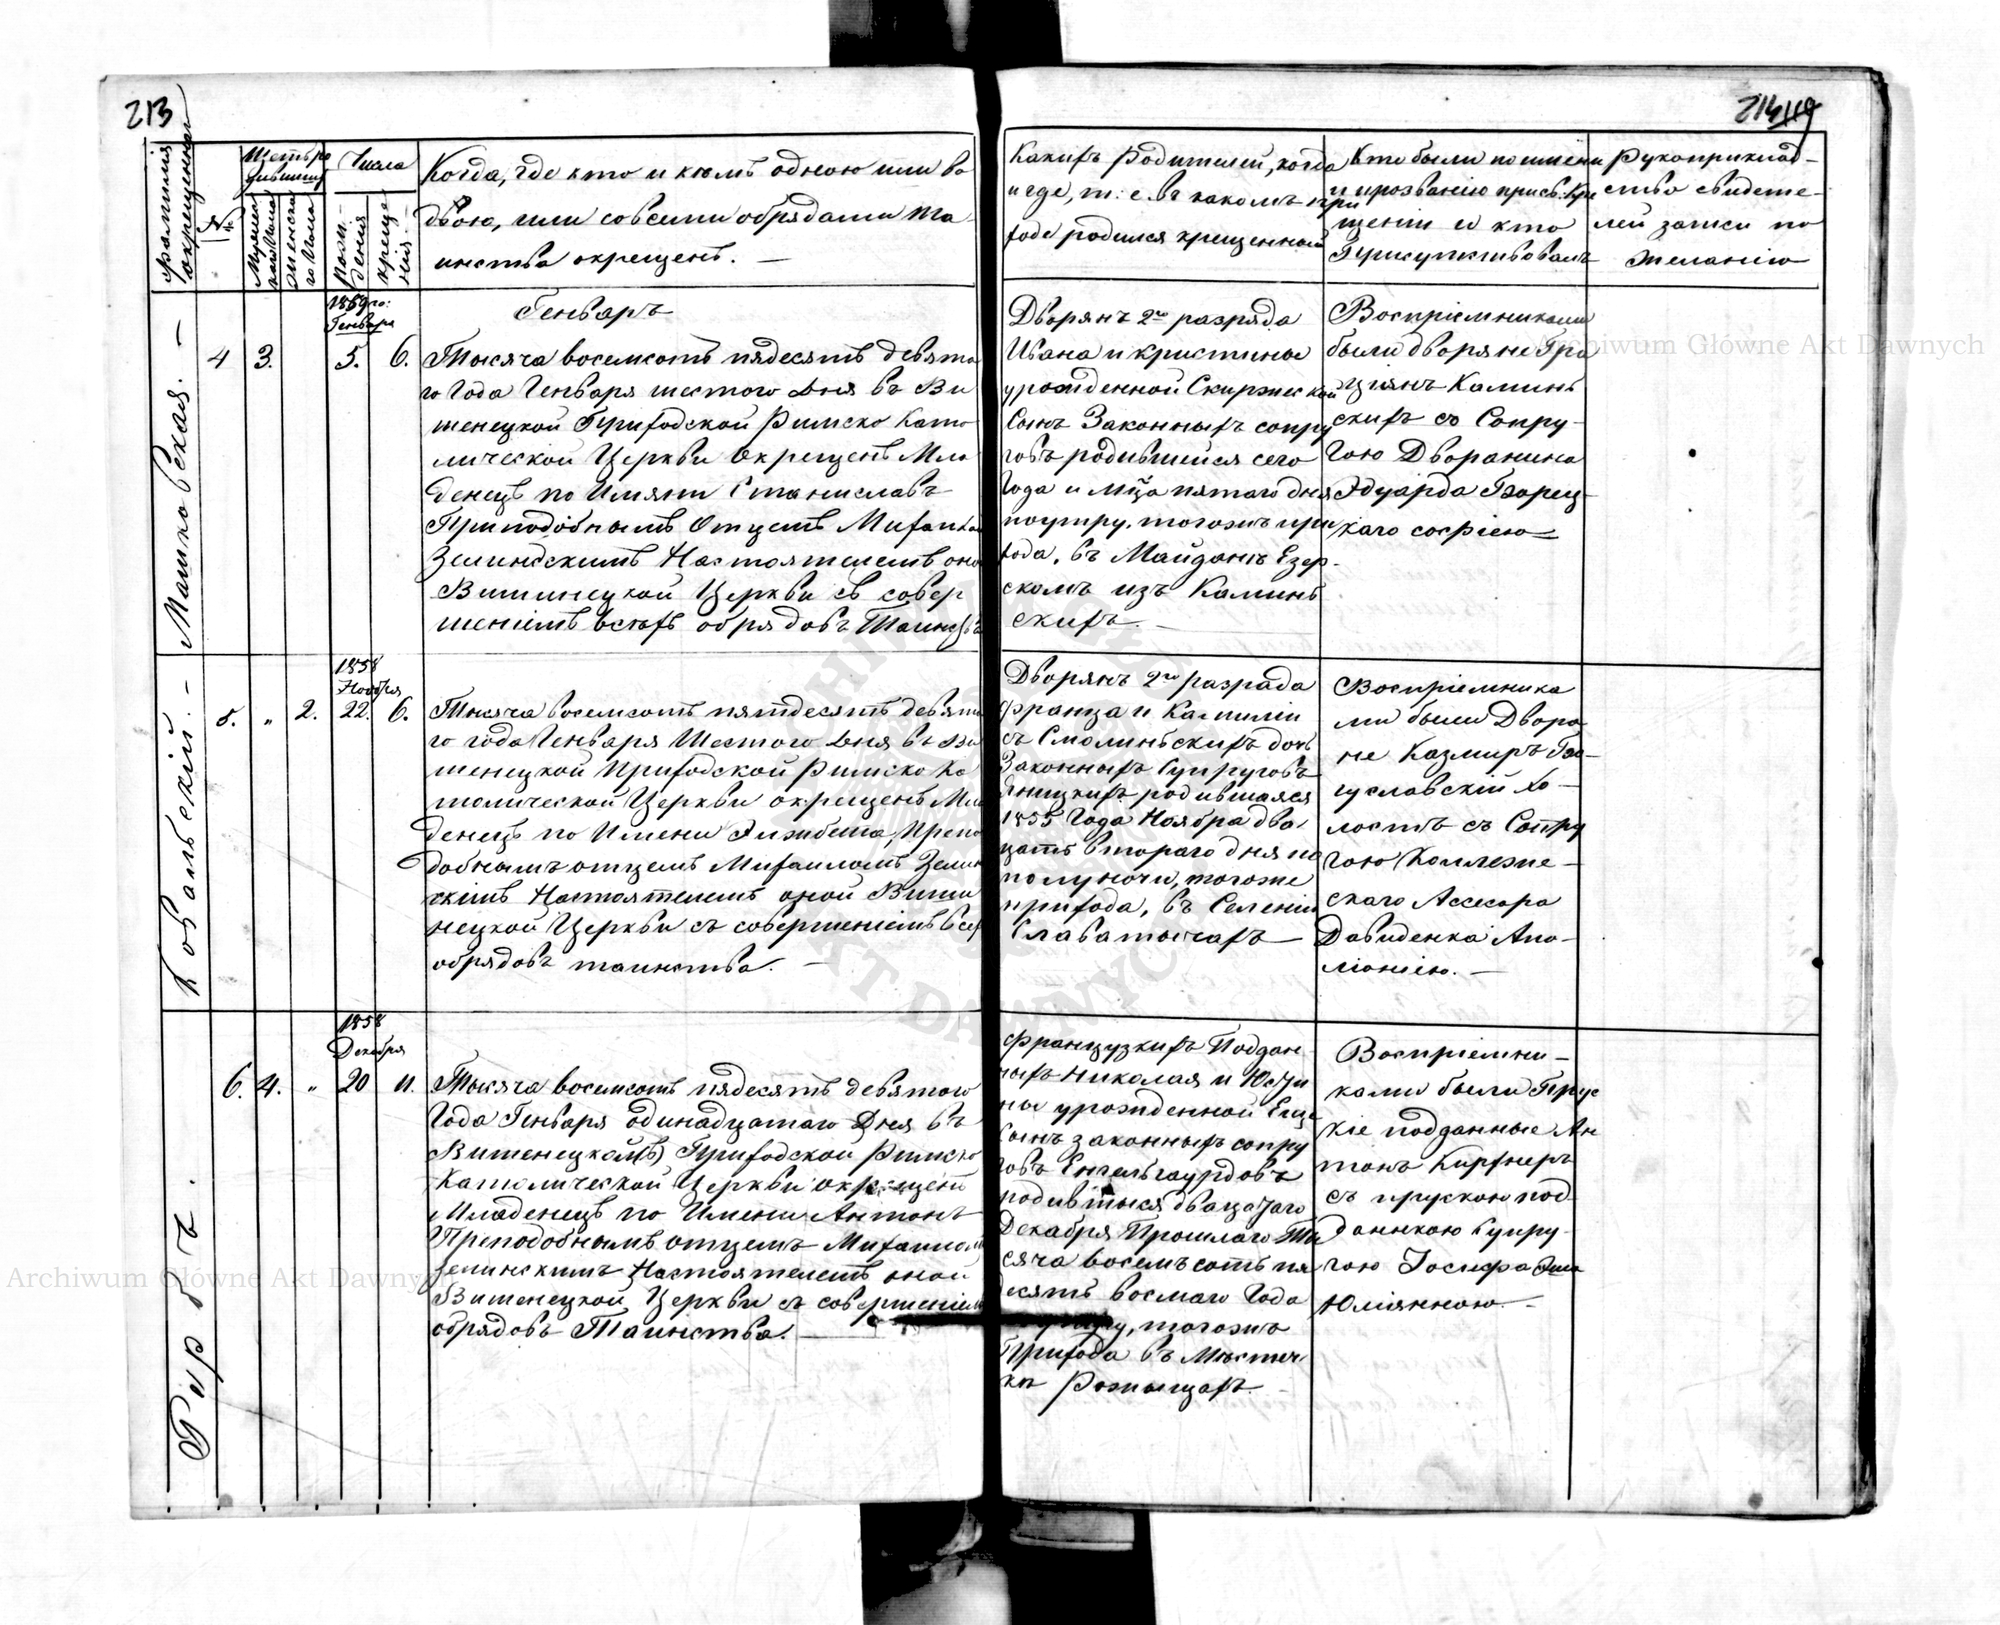 213
21449
Фамилія окрещеннаго
№
Щетъ родившихся
Мужеска Пола
женска го Пола
Числа
рожденія
крещенія
Когда, где кто и кѣмъ одною или во
двою, или совсеми обрядами та
инства окрещенъ. —
Какихъ Родителей, когда
и где, т: е. въ какомъ при
ходе родился крещенной
Кто были по имени
и прозванію при св. кре
щении и кто
Присутствовалъ
Рукоприклад-
ство свидете-
лей записи по
желанію
Машковская. —
4 3. 5. 6.
1859 го:
Генваря
Генварь
Тысяча восемсотъ пядесятъ девято
го Года Генваря шестого дня въ Ви
шенецкой Приходской Римско Като
лической Церкви Окрещенъ Мла
денецъ по Имяни Станиславъ
Приподобнымъ Отцемъ Михаил
Зелинскимъ Настоятелемъ оно
Вишнецкой Церкви съ совер
шеніемъ всехъ обрядовъ Таинства
Дворянъ 2го разряда
Ивана и Кристины
урожденной Скиржес кой
Сынъ Законныхъ супру
говъ родившейся сего
Года и м-ца пятаго дня
поутру, тогожъ при
хода, въ Майданѣ Езер-
скомъ изъ Камин
скихъ. —
Восприемниками
были дворяне Гра
ціянъ Камин
скихъ со Супру-
гою Дворанина
Эдуарда Гворец-
каго софіею
Ковальскій. —
5. „ 2. 22. 6.
1858
Ноября
Тысяча восемсотъ пятдесятъ девято
го года Генваря Шестого дня въ Ви
шенецкой Приходской Римско Ка
толической Церкви окрещенъ Мла
денецъ по Имени Элижбета, Препо
добнымъ отцемъ Михаиломъ Зелин
скимъ Настоятелемъ оной Више
нецкой Церкви съ совершеніемъ всех
обрядовъ таинства. —
Дворянъ 2го разрада
Франца и Камиліи
съ Смолинскихъ дочь
Законныхъ Супруговъ
родившаяся
1858 Года Ноября два
цать втораго дня по
полуночи, тогоже
прихода, въ Селеніи
Славатычахъ —
Восприемника
ми были Дворя
не Казмиръ Бо-
гуславскій Хо-
лостъ съ Супру
гою Коллеже-
скаго Ассесора
Давиденка Апо-
лоніею. —
Гирбъ.
6. 4. „ 20 11.
1858
Декабря
Тысяча восемсотъ пядесятъ девятого
Года Генваря одинадцатаго Дня въ
Вишенецкой Приходской Римско
Католической Церкви окрещенъ
Младенецъ по Имени Антонъ
Преподобнымъ отцемъ Михаиломъ
Зелинскимъ Настоятелемъ оной
Вишенецкой Церкви съ совершеніем
обрядовъ Таинства. —
Французкихъ Поддан
ныхъ Николая и Юсти
ны урожденной
Сынъ законныхъ супру
говъ Енгельгаурдовъ
родившися двацатаго
Декабря Прошлаго Ты
сяча восемъсотъ пя
десятъ восмаго Года
тогожъ
Прихода въ Мѣстеч
кѣ Рожыщахъ. —
Восприемни-
ками были Прус
кіе подданные Ан
тонъ Кирхнеръ
съ прускою под
даннкою супру-
гою Іосифа
Юліянною. —
Archiwum Główne Akt Dawnych
Archiwum Główne Akt Dawnych
ARCHIWUM GŁÓWNE AKT DAWNYCH